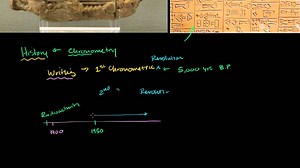 History & Chronometry
Revolution
Writing → 1st Chronometric 5,000 yrs B.P
2nd = Revolution
Radiometric
1900 1950